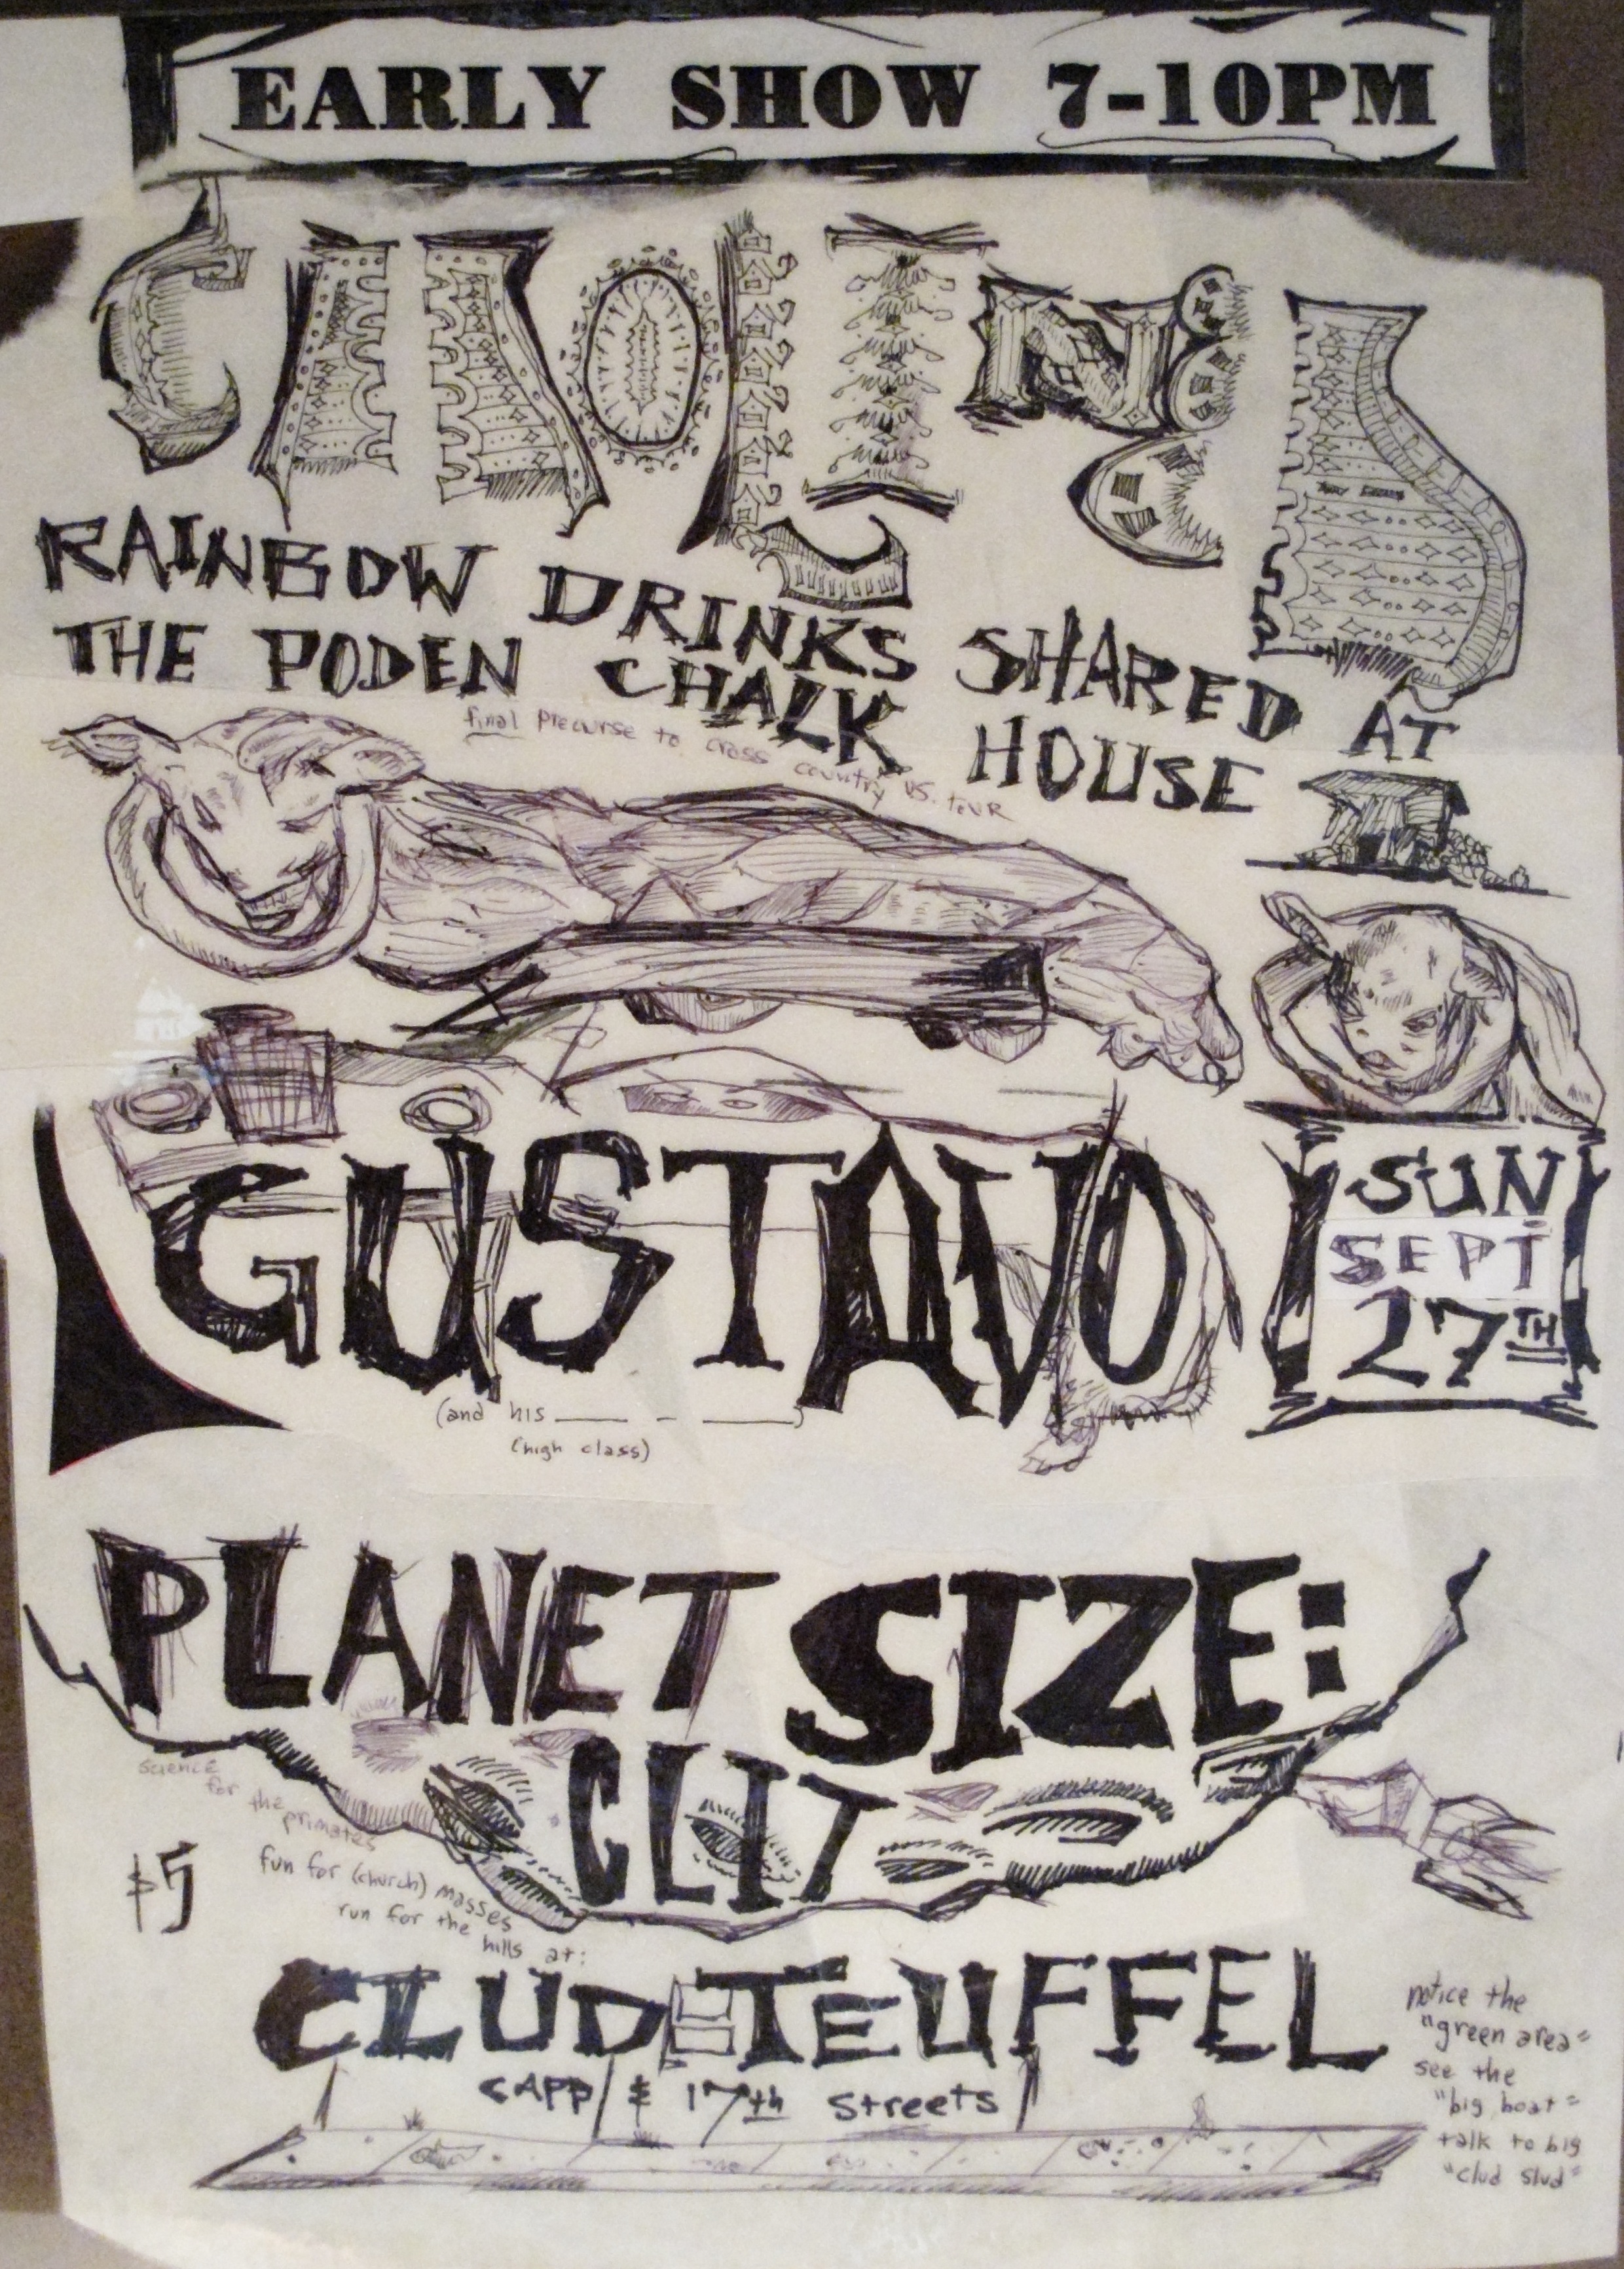 EARLY SHOW 7-10PM
CAROLINER
RAINBOW DRINKS SHARED AT
THE PODEN CHALK HOUSE
final precurse to cross country US. tour
GUSTAVO
(and his ___ - ___)
(high class)
SUN
SEPT
27TH
PLANET SIZE:
CLIT
science
for the
primates
fun for (church) masses
run for the hills at:
$5
CLUD TEUFFEL
CAPP & 17th Streets
notice the
"green area"
see the
"big boat"
talk to big
"clud slud"